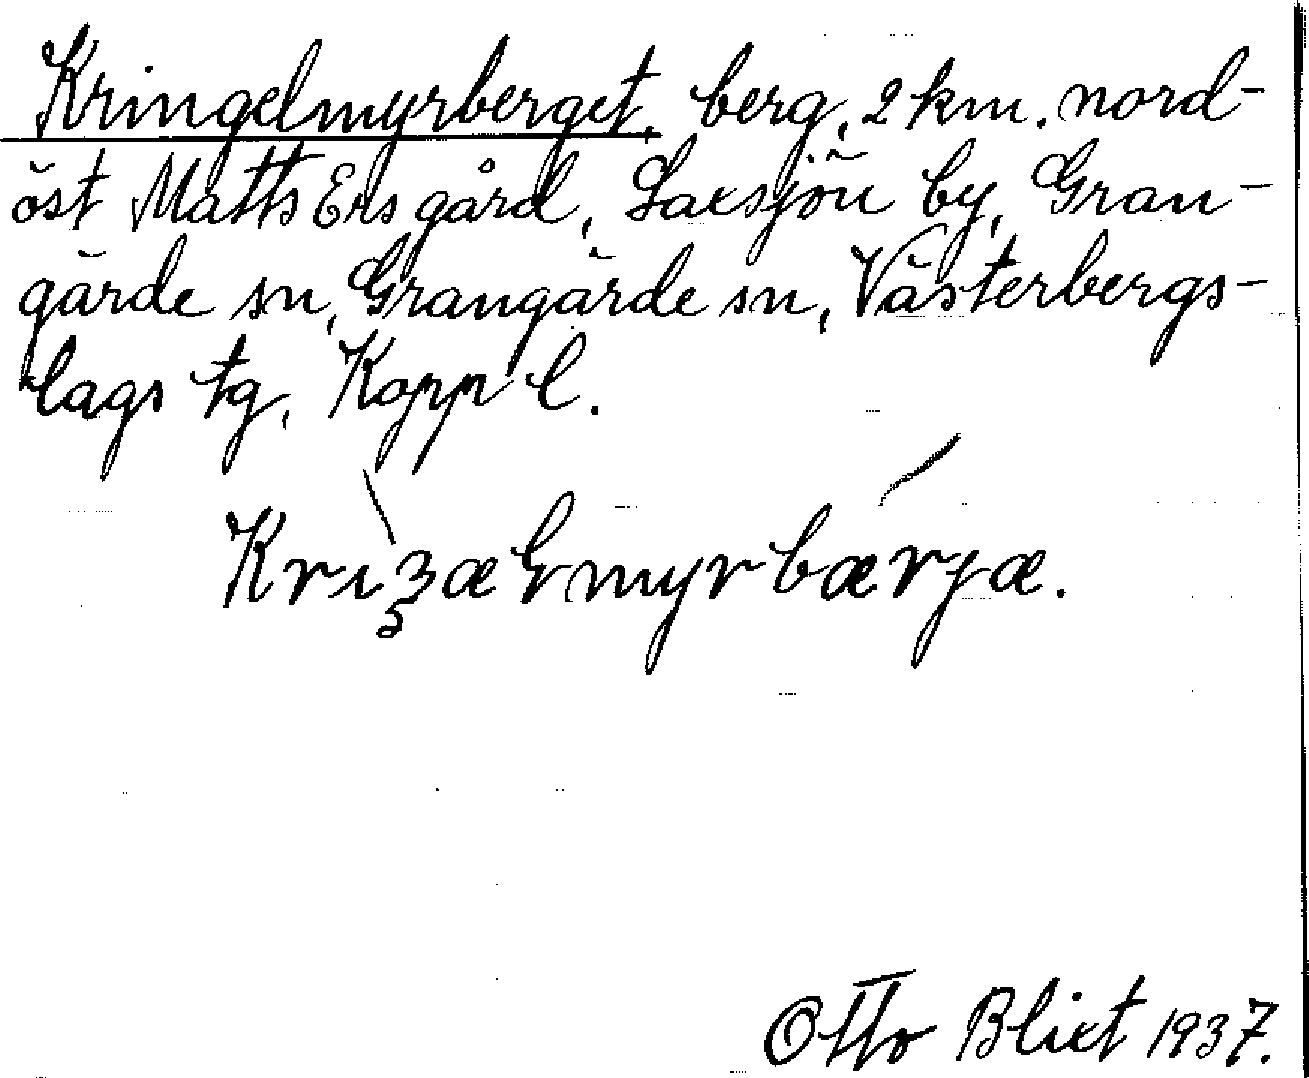 Kringelmyrberget, berg, 2 km. nord-
öst Matts Ers gård, Laxsjön by, Gran-
gärde sn, Grangärde sn, Västerbergs-
lags tg, Kopp l.
Otto Blixt 1937.